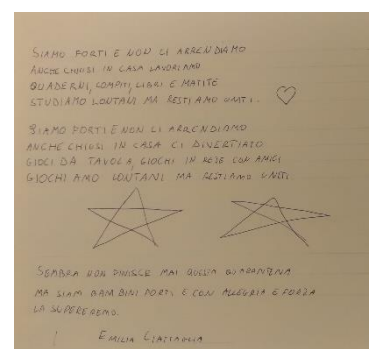 SIAMO FORTI E NON CI ARRENDIAMO
ANCHE CHIUSI IN CASA LAVORIAMO
QUADERNI, COMPITI, LIBRI E MATITE
STUDIAMO LONTANI MA RESTIAMO UNITI.
SIAMO FORTI E NON CI ARRENDIAMO
ANCHE CHIUSI IN CASA CI DIVERTIAMO
GIOCI DA TAVOLA, GIOCHI IN RETE CON AMICI
GIOCHIAMO LONTANI MA RESTIAMO UNITI.
SEMBRA NON FINISCE MAI QUELLA QUARANTENA
MA SIAM BAMBINI FORTI E CON ALLEGRIA E FORZA
LA SUPEREREMO.
EMILIA